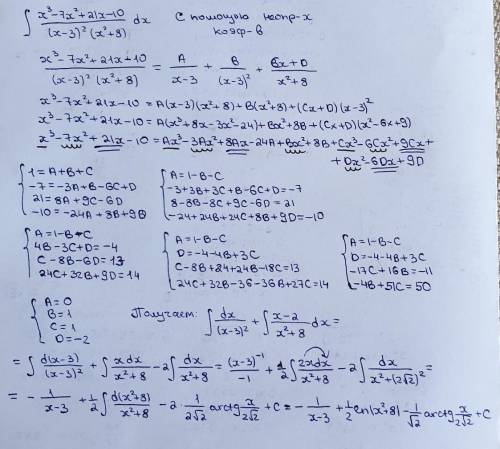 ∫ (x³-7x²+21x-10)/((x-3)²(x²+8)) dx С помощью неопр-х
коэф-в
(x³-7x²+21x-10)/((x-3)²(x²+8)) = A/(x-3) + B/(x-3)² + (Cx+D)/(x²+8)
x³-7x²+21x-10 = A(x-3)(x²+8)+B(x²+8)+(Cx+D)(x-3)²
x³-7x²+21x-10 = A(x³+8x-3x²-24)+Bx²+8B+(Cx+D)(x²-6x+9)
x³-7x²+21x-10 = Ax³-3Ax²+8Ax-24A+Bx²+8B+Cx³-6Cx²+9Cx+
+Dx²-6Dx+9D
{ 1=A+B+C
-7=-3A+B-6C+D
21=8A+9C-6D
-10=-24A+8B+9D
{ A=1-B-C
-3+3B+3C+B-6C+D=-7
8-8B-8C+9C-6D=21
-24+24B+24C+8B+9D=-10
{ A=1-B-C
4B-3C+D=-4
C-8B-6D=13
24C+32B+9D=14
{ A=1-B-C
D=-4-4B+3C
C-8B+24+24B-18C=13
24C+32B-36-36B+27C=14
{ A=1-B-C
D=-4-4B+3C
-17C+16B=-11
-4B+51C=50
{ A=0
B=1
C=1
D=-2
Получаем: ∫ dx/(x-3)² + ∫ (x-2)/(x²+8) dx =
= ∫ d(x-3)/(x-3)² + ∫ xdx/(x²+8) - 2∫ dx/(x²+8) = (x-3)⁻¹/-1 + 1/2 ∫ 2xdx/(x²+8) - 2∫ dx/(x²+(2√2)²) =
= - 1/(x-3) + 1/2 ∫ d(x²+8)/(x²+8) - 2 · 1/(2√2) arctg x/(2√2) + C = - 1/(x-3) + 1/2 ln(x²+8) - 1/√2 arctg x/(2√2) + C